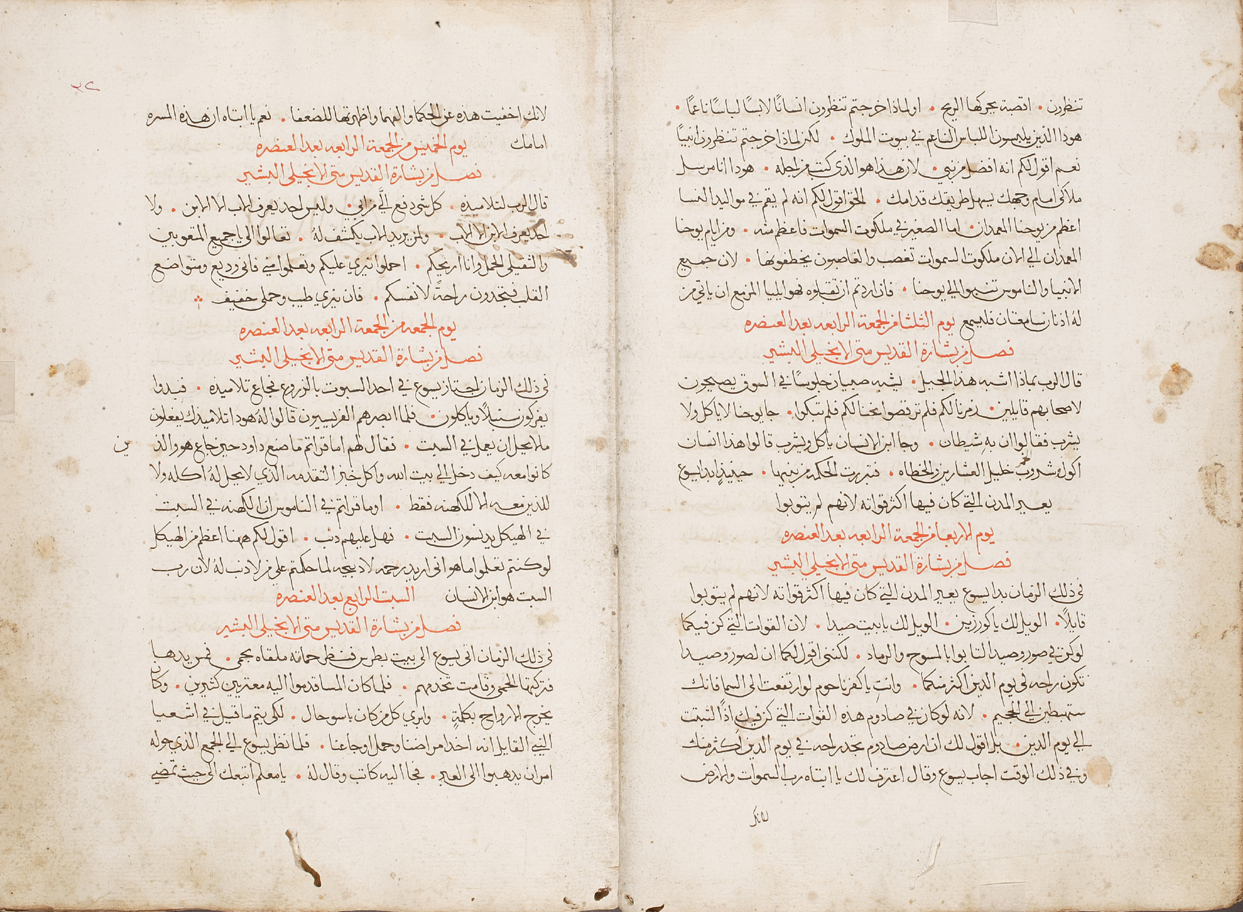 تنظرون • اقصبة يحركها الريح • او لماذا خرجتم تنظرون انسانًا لابسًا لباسًا ناعمًا •
هوذا الذين يلبسون اللباس الناعم في بيوت الملوك • لكن لماذا خرجتم تنظرون انبيًا
نعم اقول لكم انه افضل من نبي • لان هذا هو الذي كتب من اجله • هوذا انا مرسل
ملاكي امام وجهك يسهل طريقك قدامك • الحق اقول لكم انه لم يقم في مواليد النسا
اعظم من يوحنا المعمدان • اما الصغير في ملكوت السموات فاعظم منه • ومن ايام يوحنا
المعمدان الى الان ملكوت السموات تغصب والغاصبون يخطفونها • لان جميع
الانبيا والناموس تنبوا الى يوحنا • فان اردتم ان تقبلوه فهو ايليا المزمع ان ياتي من
له اذنان سامعتان فليسمع يوم الثلثا من الجمعة الرابعه بعد العنصره
فصل من بشارة القديس متى الانجيلي البشير
قال الرب بماذا اشبه هذا الجيل • يشبه صبيان جلوسًا في السوق يصيحون
لاصحابهم قايلين • زمرنا لكم فلم ترقصوا نحنا لكم فلم تبكوا • جا يوحنا لا ياكل ولا
يشرب فقالوا ان به شيطان • وجا ابن الانسان ياكل ويشرب قالوا هذا انسان
اكول شروب خمر خليل العشارين والخطاه • فتبررت الحكمه من بنيها • حينيذٍ بدا يسوع
يعير المدن التي كان فيها اكثر قواته لانهم لم يتوبوا
يوم الاربعا من الجمعة الرابعه بعد العنصره
فصل من بشارة القديس متى الانجيلي البشير
في ذلك الزمان بدا يسوع يعير المدن التي كان فيها اكثر قواته لانهم لم يتوبوا
قايلًا • الويل لك يا كورزين • الويل لك يا بيت صيدا • لان القوات التي كن فيكما
لو كن في صور وصيدا لتابوا بالمسوح والرماد • لكنني اقول لكما ان لصور وصيدا
تكون راحه في يوم الدين اكثر منكما • وانتِ يا كفرناحوم لو ارتفعت الى السما فانك
ستهبطين الى الجحيم • لانه لو كان في صادوم هذه القوات التي كن فيكِ اذًا لثبتت
الى يوم الدين • بل اقول لك ان ارض صادوم تجد راحه في يوم الدين اكثر منك
وفي ذلك الوقت اجاب يسوع وقال اعترف لك يا ابتاه رب السموات والارض
لانك
٣٢
لانك اخفيت هذه عن الحكما والفهما واظهرتها للضعفا • نعم يا ابتاه ان هذه المسره
امامك يوم الخميس من الجمعة الرابعه بعد العنصره
فصل من بشارة القديس متى الانجيلي البشير
قال الرب لتلاميذه • كل شي دفع الَّي من ابي • وليس احد يعرف الاب الا الابن • ولا
احد يعرف الابن الا الاب • ولمن يريد الاب يكشف لهُ • تعالوا الي يا جميع المتعوبين
والثقيلي الحمل وانا اريحكم • احملوا نيري عليكم وتعلموا مني فاني وديع ومتواضع
القلب فتجدون راحةً لانفسكم • فان نيري طيب وحملي خفيف
يوم الجمعه من الجمعة الرابعه بعد العنصره
فصل من بشارة القديس متى الانجيلي البشير
في ذلك الزمان اجتاز يسوع في احد السبوت بالزروع فجاع تلاميذه • فبدوا
يفركون سنبلًا وياكلون • فلما ابصرهم الفريسيون قالوا له هوذا تلاميذك يفعلون
ما لا يحل ان يعمل في السبت • فقال لهم اما قراتم ما صنع داود حين جاع هو والذ
ين
كانوا معه كيف دخل الى بيت الله واكل خبز التقدمه الذي لا يحل له اكله ولا
للذين معه الا للكهنه فقط • او ما قراتم في الناموس ان الكهنه في السبت
في الهيكل يدنسون السبت • فهل عليهم ذنب • اقول لكم ههنا اعظم من الهيكل
لو كنتم تعلموا ما هو اني اريد رحمه لا ذبيحه لما حكمتم على من لا ذنب له لان رب
السبت هو ابن الانسان السبت الرابع بعد العنصره
فصل من بشارة القديس متى الانجيلي البشير
في ذلك الزمان اتى يسوع الى بيت بطرس فنظر حماته ملقاه بحمى • فمس يدها
فتركتها الحمى وقامت تخدمهم • فلما كان المسا قدموا اليه معترين كثيرين • وكان
يخرج الارواح بكلمةٍ • وابرى كل من كان باسو حال • لكي يتم ما قيل في اشعيا
النبي القايل انه اخذ امراضنا وحمل اوجاعنا • فلما نظر يسوع الى الجمع الذي حوله
امر ان يذهبوا الى العبر • فجا اليه كاتب وقال لهُ • يا معلم اتبعك الى حيث تمضي